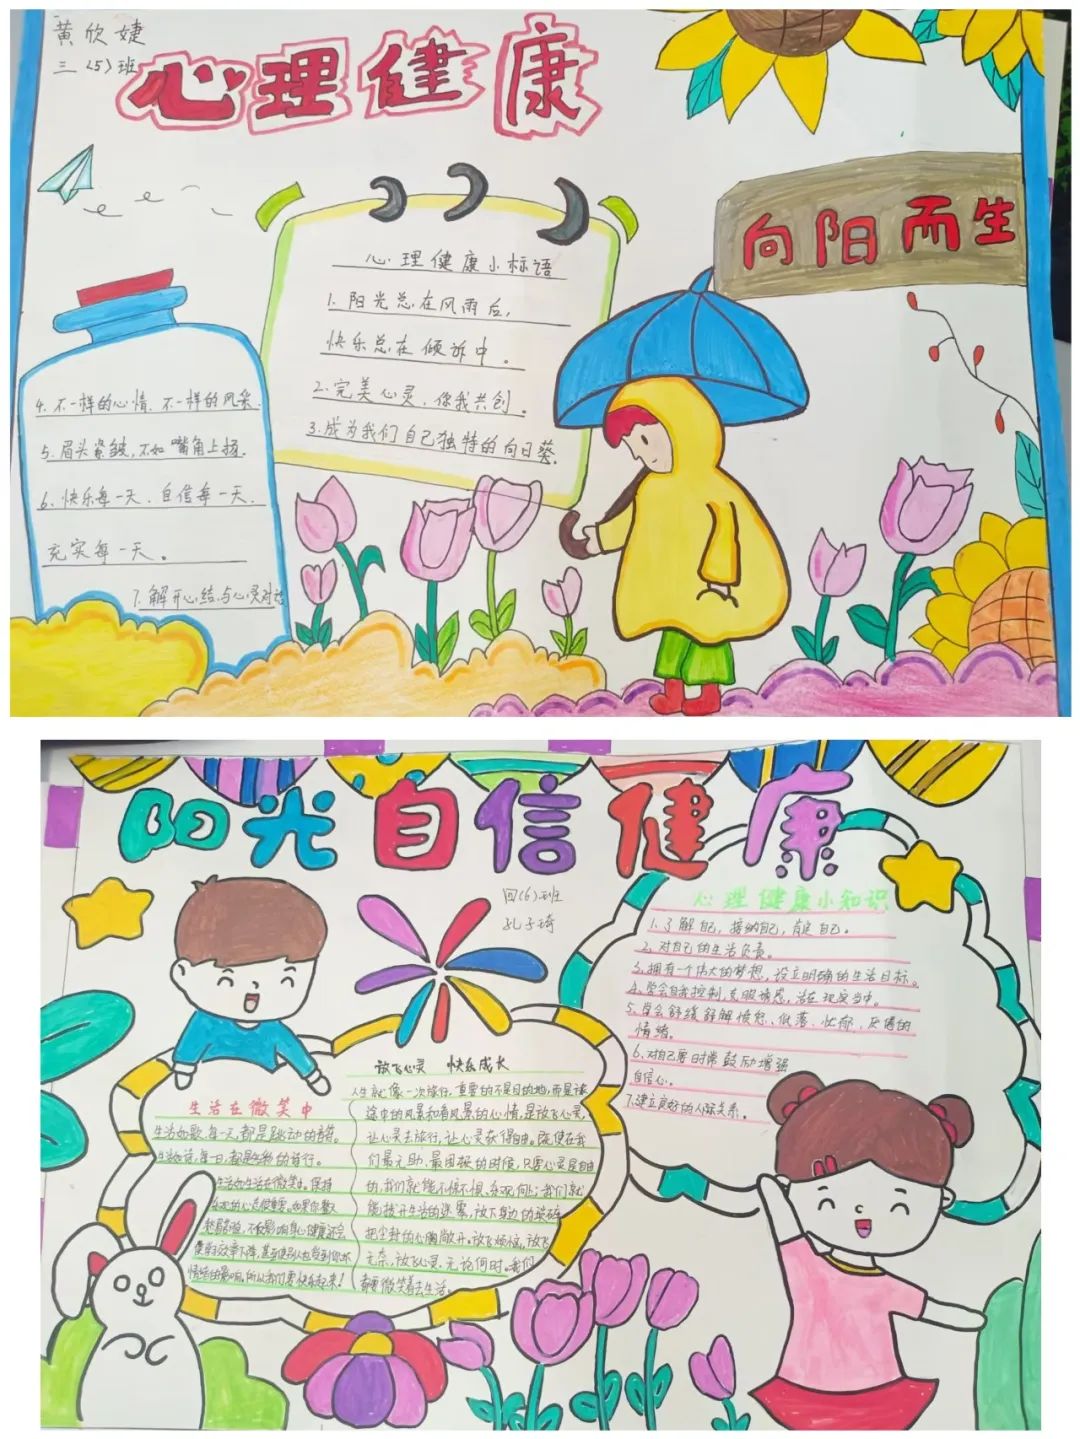 黄欣婕
三(5)班
心理健康
向阳而生
心理健康小标语
1.阳光总在风雨后,
快乐总在倾诉中。
2.完美心灵,你我共创。
3.成为我们自己独特的向日葵.
4.不一样的心情、不一样的风采.
5.眉头紧皱,不如嘴角上扬.
6.快乐每一天、自信每一天、
充实每一天。
7.解开心结,与心灵对话
阳光自信健康
四(6)班
孔子琦
心理健康小知识
1.了解自己,接纳自己,肯定自己。
2.对自己的生活负责。
3.拥有一个伟大的梦想,设立明确的生活目标。
4.学会自我控制,克服诱惑,活在现实当中。
5.学会舒缓舒解愤怒、低落、忧郁、厌倦的
情绪。
6.对自己要时常鼓励增强
自信心。
7.建立良好的人际关系。
生活在微笑中
生活如歌,每一天,都是跳动的音符。
生活如诗,每一日,都是的诗行。
生活如生活在微笑中。保持
乐观的心态很重要。如果你整天
愁眉苦脸,不仅影响身心健康还会
情绪的影响,所以我们要快乐起来!
放飞心灵 快乐成长
人生就像一次旅行,重要的不是目的地,而是旅
途中的风景和看风景的心情,是放飞心灵
让心灵去旅行,让心灵获得自由。既使在我
们最无助、最困极的时候,只要心灵是自由
的,我们就能不惊不惧、乐观向上;我们就
能拨开生活的迷雾,放下身边的琐碎
把尘封的心胸敞开。放飞烦恼,放飞
无奈,放飞心灵.无论何时。我们
都要微笑着去生活。